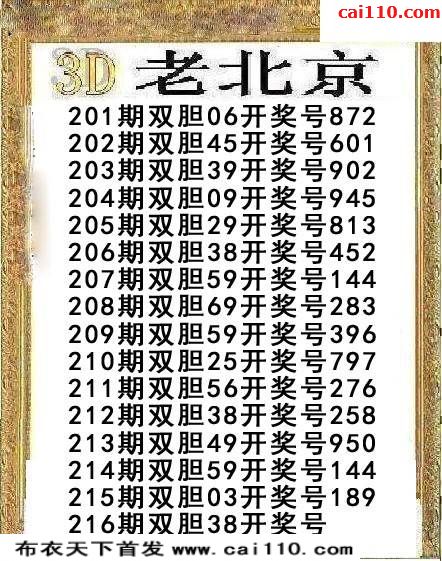 cai110.com
3D 老北京
201期双胆06开奖号872
202期双胆45开奖号601
203期双胆39开奖号902
204期双胆09开奖号945
205期双胆29开奖号813
206期双胆38开奖号452
207期双胆59开奖号144
208期双胆69开奖号283
209期双胆59开奖号396
210期双胆25开奖号797
211期双胆56开奖号276
212期双胆38开奖号258
213期双胆49开奖号950
214期双胆59开奖号144
215期双胆03开奖号189
216期双胆38开奖号
布衣天下首发 www.cai110.com